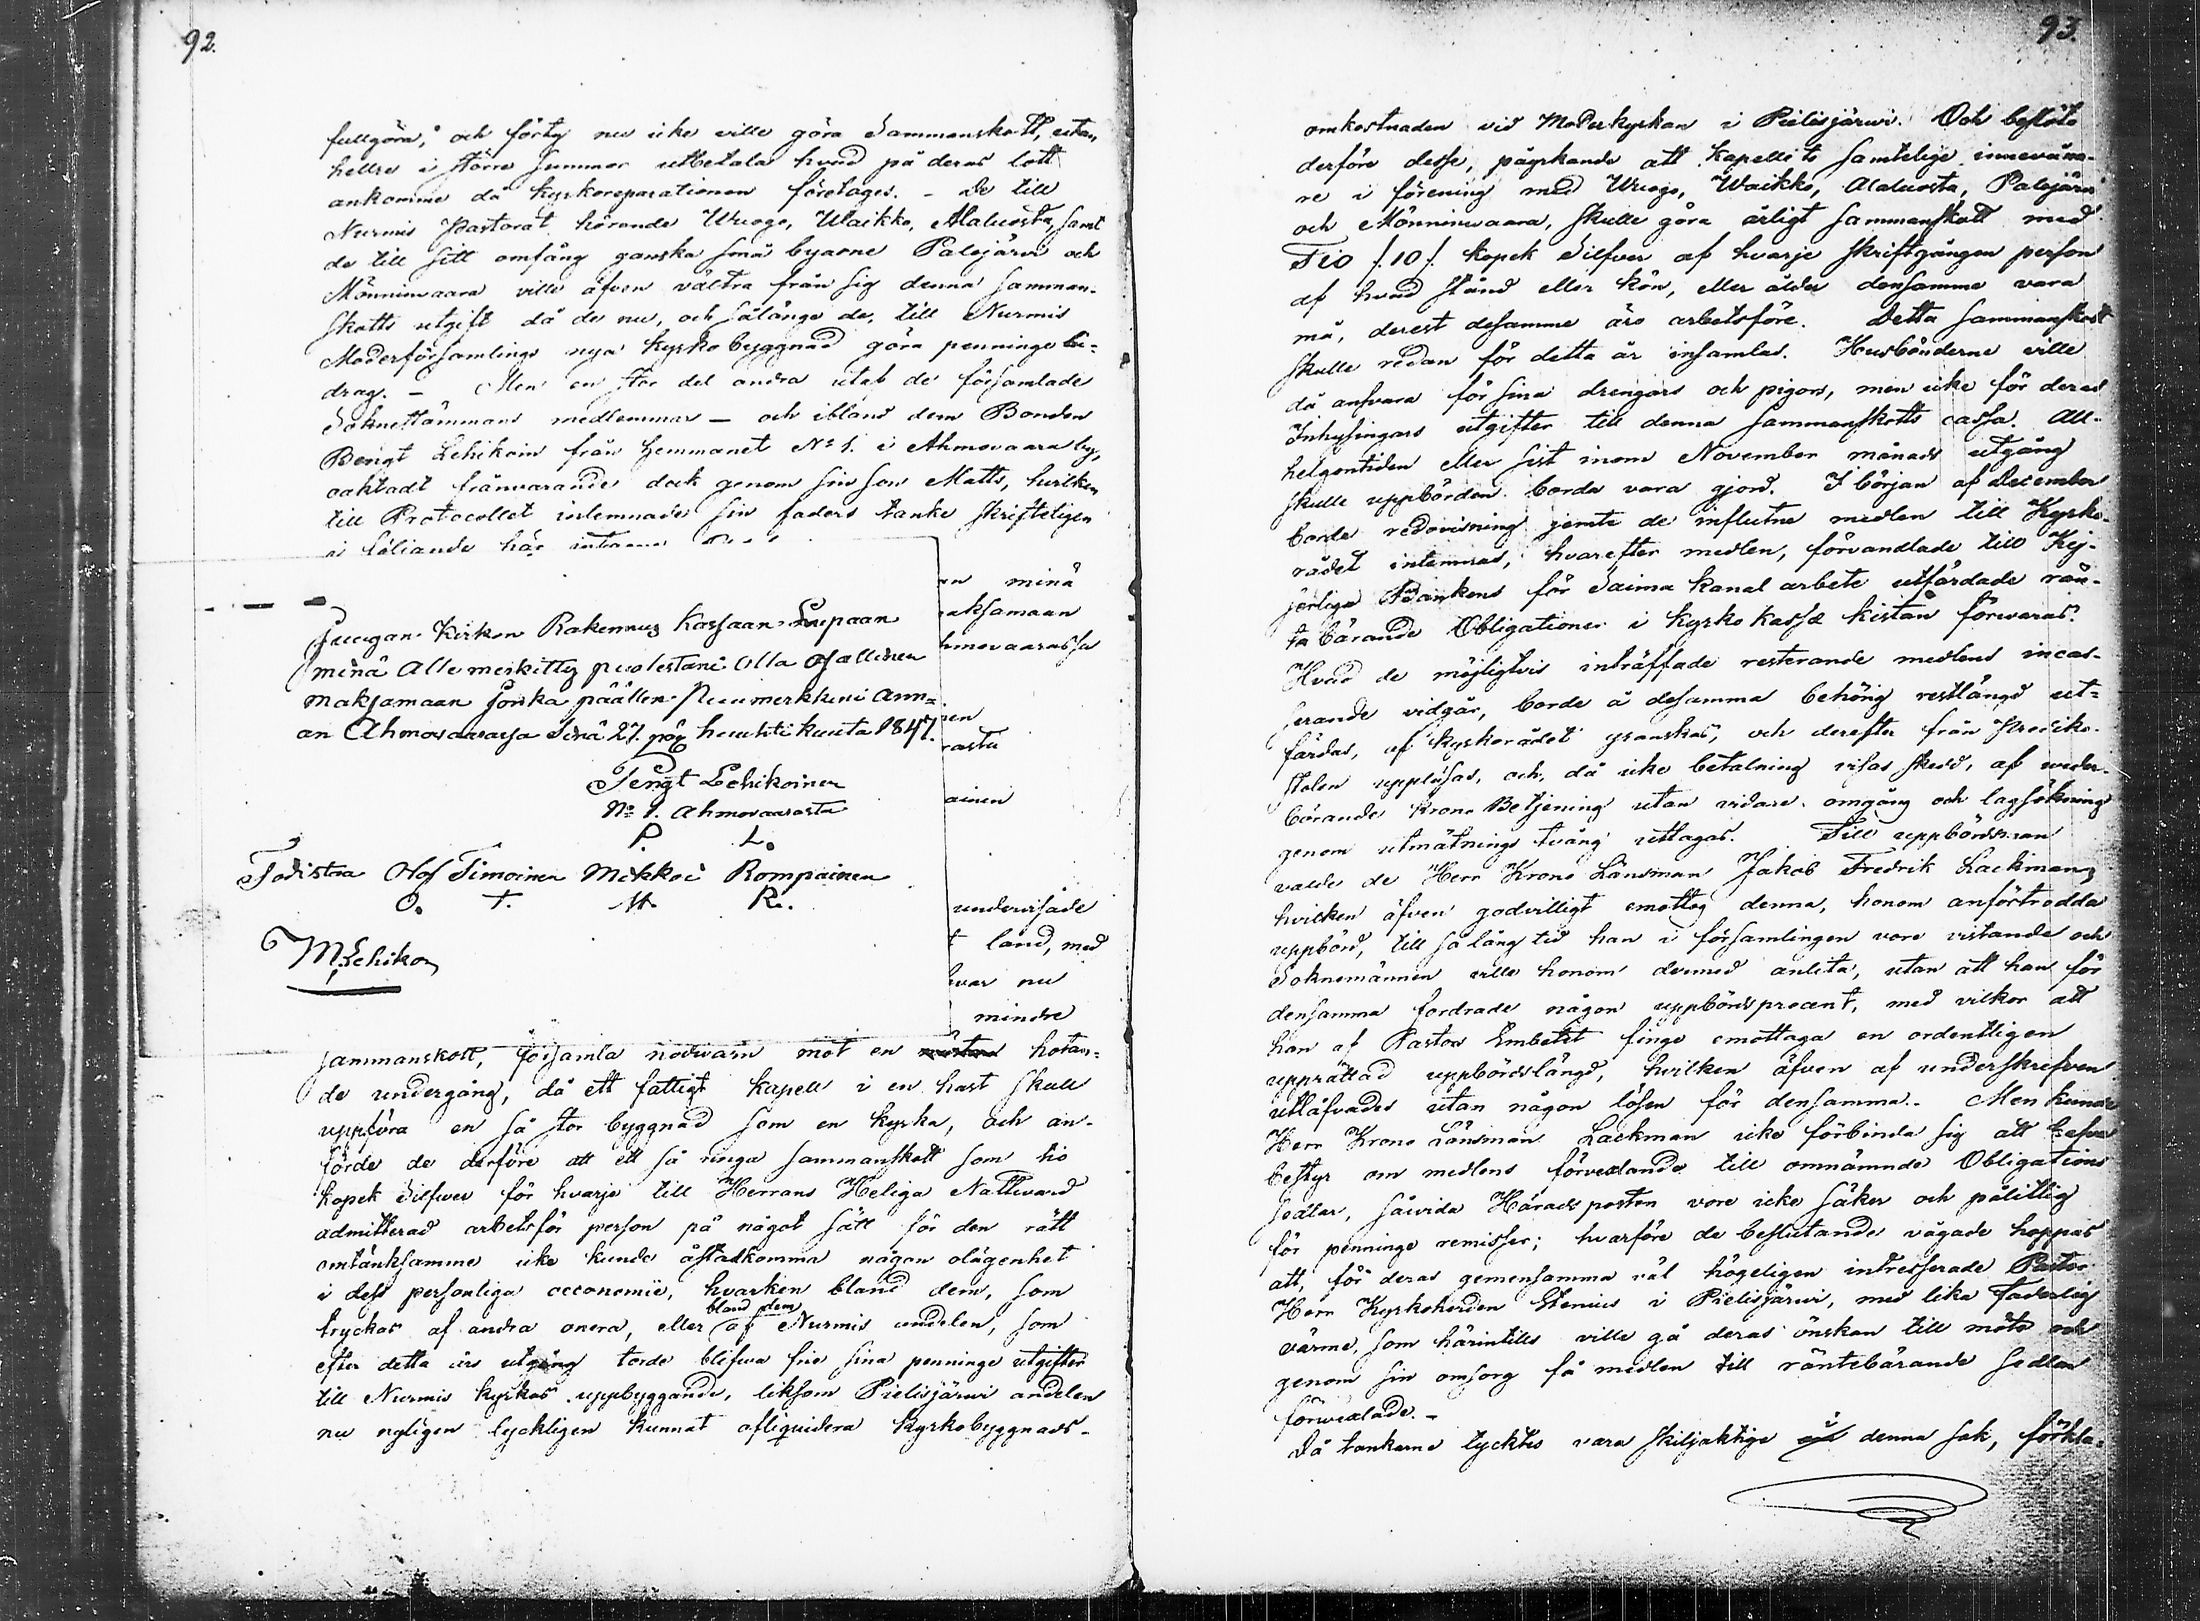 92.
fullgöra, och förty nu icke ville göra Sammanskott, utan
hellre i större summor utbetala hvad på deras lott
ankomme då kyrkoreparationen företages. - De till
Nurmis Pastorat hörande Wuogo, Waikko, Alaluosta, samt
de till sitt omfång ganska små byarne Palojärvi och
Mönninvaara ville äfven vältra från sig denna samman-
skotts utgift då de nu, och sålänge de, till Nurmis
Moderförsamlings nya kyrkobyggnad göra penninge bi-
drag. - Men en stor del andra utaf de församlade
Soknestämmans medlemmar - och ibland dem Bonden
Bengt Lehikoin från hemmanet No 1. i Ahmovaara by,
oaktadt frånvarande dock genom sin son Matts, hvilken
till Protocollet inlemnade sin faders tanke skrifteligen
i följande här intagne
Juugan Kirkon Rakennus Kassaan Lupaan
minä Alle merkitty puolestani olla osallinen
maksamaan Jonka päällen Puumerkkini ann-
an Ahmovaarassa Sinä 27. päi huuhtikuuta 1847.
Pengt Lehikoinen
No 1. Ahmovaarasta
P. L.
Todistaa Olof Timoinen Mikkoi Rompainen
O. T. M. R.
M Lehikoin
en minä
aksamaan
hmovaarassa
nen
rasta
ainen
undervisade
t land, med
hvar nu
mindre
sammanskott, församla nödvarn mot en hotan-
de undergång, då ett fattigt kapell i en hast skall
uppföra en så stor byggnad som en kyrka, och an-
förde de derföre att ett så ringa sammanskott som tio
kopek Silfver för hvarje till Herrans Heliga Nattvard
admitterad arbetsför person på något sätt för den rätt
omtänksamme icke kunde åstadkomma någon olägenhet
i dess personliga oeconomie, hvarken bland dem, som
tryckas af andra onera, eller bland dem af Nurmis andelen, som
efter detta års utgång torde blifva frie sina penninge utgifter
till Nurmis kyrkas uppbyggande, liksom Pielisjärvi andelen
nu nyligen lyckligen kunnat afliquidera kyrkobyggnads-
93.
omkostnaden vid Moderkyrkan i Pielisjärvi. Och beslöto
derföre desse, påyrkande att kapellets samtelige innevåna-
re i förening med Wuogo, Waikko, Alaluosta, Palojärvi
och Mönninvaara, skulle göra årligt sammanskott med
Tio /:10:/ kopek Silfver af hvarje skriftgången person
af hvad stånd eller kön, eller ålder densamme vara
må, derest desamme äro arbetsföre. Detta sammanskott
skulle redan för detta år insamlas. Husbönderne ville
då ansvara för sina drengars och pigors, men icke för deras
Inhysingars utgifter till denna sammanskotts cassa. All-
helgontiden eller sist inom November månads utgång
skulle uppbörden borda vara gjord. I början af December
borde redovisning jemte de influtne medlen till Kyrko-
rådet inlemnas, hvarefter medlen, förvandlade till Kej-
serliga Bankens för Saima kanal arbete utfärdade rän-
ta bärande Obligationer i kyrko kassæ kistan förvaras.
Hvad de möjligtvis inträffade resterande medlens incas-
serande vidgår, borde å desamma behörig restlängd ut-
färdas, af kyrkorådet granskas, och derefter från Prediko-
stolen uppläsas, och, då icke betalning visas skedd, af veder-
börande Krono Betjening utan vidare omgång och lagsökning
genom utmätnings tvång uttagas. Till uppbördsman
valde de Herr Krono Länsman Jakob Fredrik Lackman,
hvilken äfven godvilligt emottog denna, honom anförtrodda
uppbörd, till så lång tid han i församlingen vore vistande och
Soknemännen ville honom dermed anlita, utan att han för
densamma fordrade någon uppbördsprocent, med vilkor att
han af Pastors Embetet finge emottaga en ordentligen
upprättad uppbördslängd, hvilken äfven af underskrefven
utläfvades utan någon lösen för densamma. Men kunde
Herr Krono Länsman Lackman icke förbinda sig att hafva
bestyr om medlens förvexlande till omnämnde Obligations
sedlar, såvida Härads posten vore icke säker och pålitlig
för penninge remisser; hvarföre de beslutande vågade hoppas
att, för deras gemensamma väl högeligen intresserade Pastor
Herr Kyrkoherden Stenius i Pielisjärvi, med lika faderlig
värme, som härintills ville gå deras önskan till möte och
genom sin omsorg få medlen till räntebärande sedlar
förvexlade. -
Då tankarne tycktes vara skiljaktige i denna sak, förkla-